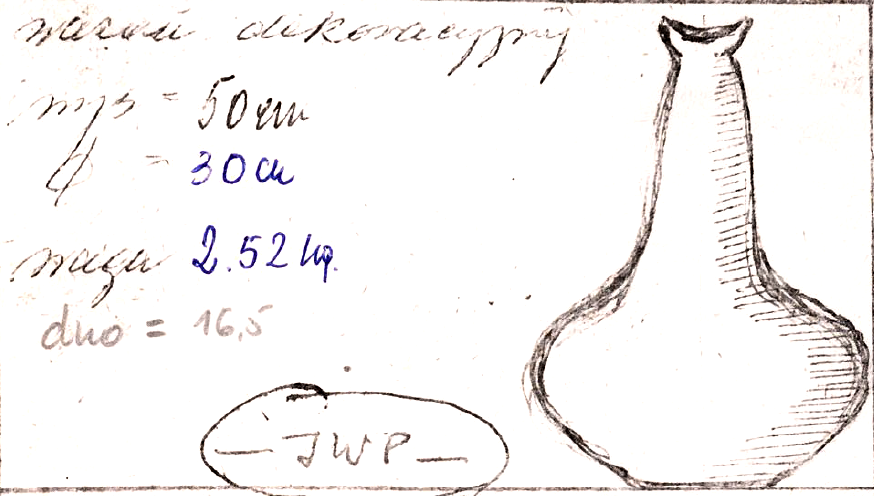 wazon dekoracyjny
wys = 50 cm
ϕ = 30 cm
waga 2.52 kg.
dno = 16,5
— IWP —